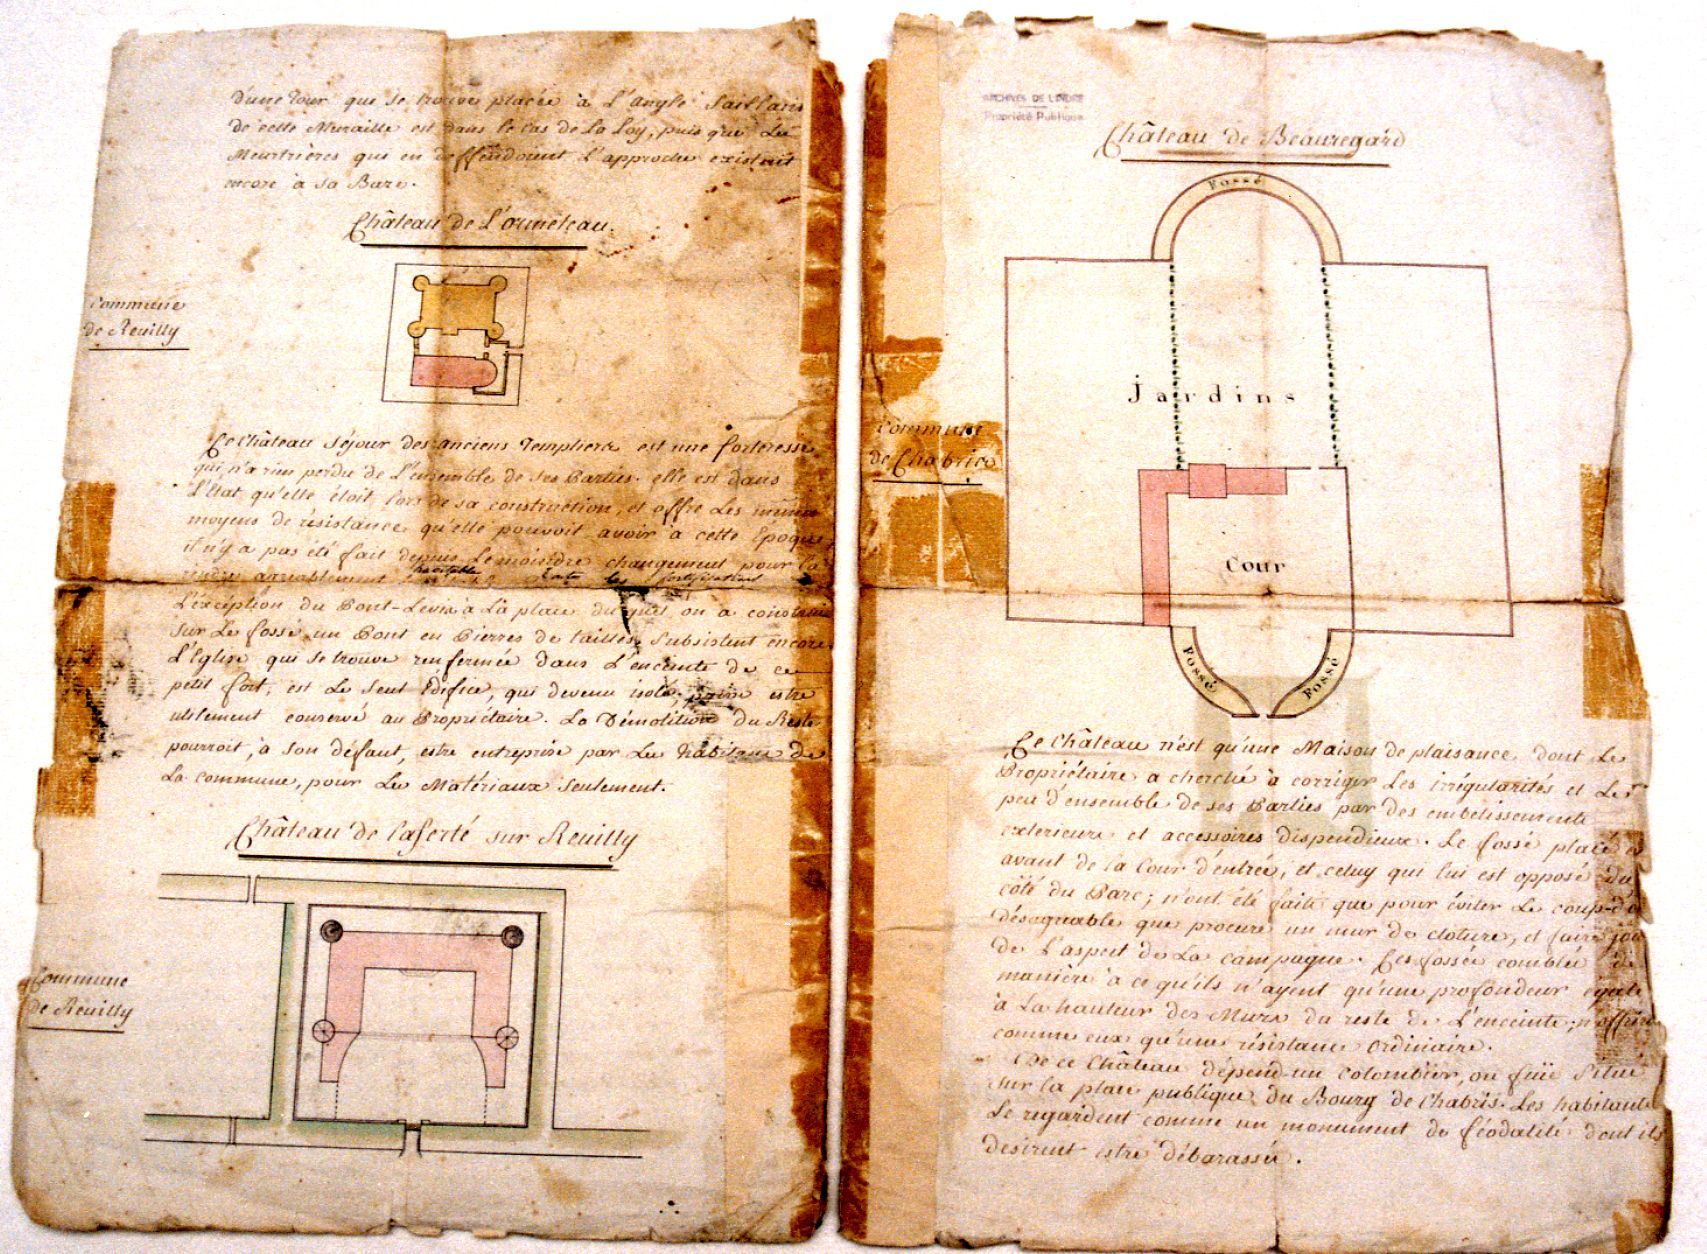 d'une Tour que se trouve placée à L'angle Saillant
de cette Muraille est dans le cas de La Loy, puis que Les
Meurtrières qui en deffendoient L'approche existent
encore à sa Baze.
Château de L'ormeteau.
Commune
de Reuilly
Ce Château Séjour des anciens Templiers est une forteresse
qui n'a rien perdu de L'ensemble de ses Parties. elle est dans
L'Etat qu'elle étoit lors de sa construction, et offre Les mêmes
moyens de résistance qu'elle pouvoit avoir à cette Epoque
il n'y a pas été fait depuis Le moindre changement pour la
habitable toute les fortifications
L'exception du Pont-Levis à La place du quel on a construit
sur Le fossé un Pont en Pierres de tailles, Subsistent encore
L'Eglise qui se trouve renfermée dans L'enceinte de ce
petit fort, est Le Seul Edifice, qui devenu isolé puisse estre
utilement conservé au Propriétaire. La Démolition du Reste
pourroit, à son défaut, estre entreprise par Les habitans de
La commune, pour Les Matériaux Seulement.
Château de laferté sur Reuilly
Commune
de Reuilly
ARCHIVES DE L'INDRE
Propriété Publique
Château de Beauregard
Fossé
Jardins
Commune
de Chabris
Cour
Fossé
Fossé
Ce Château n'est qu'une Maison de plaisance dont Le
Propriétaire a cherché à corriger Les irrégularités et Le
peu d'ensemble de ses Parties par des embélissements
exterieurs et accessoires dispendieux. Le fossé placé en
avant de la Cour d'entrée, et celuy qui lui est opposé du
côté du Parc; n'ont été faits que pour éviter Le coup-d'o
désagréable que procure un mur de cloture, et faire joui
de L'aspect de La campagne. Ces fossés comblés de
manière à ce qu'ils n'ayent qu'une profondeur égale
à La hauteur des Murs du reste de L'enceinte, n'offrent
comme eux qu'une résistance ordinaire.
De ce Château dépend un colombier, ou füie Situé
sur la place publique du Bourg de Chabris. Les habitants
Le regardent comme un monument de féodalité dont ils
désirent estre débarassés.